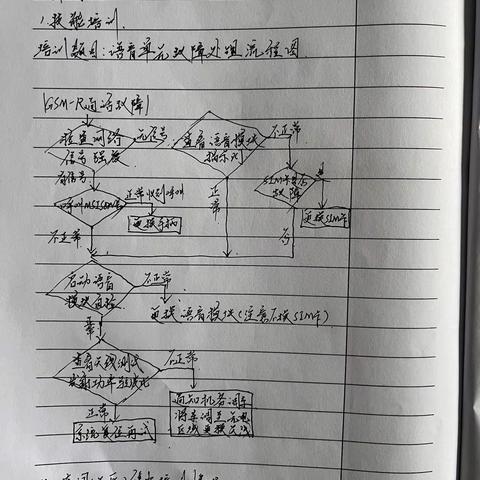 1.技能培训.
培训题目:语音单元故障处理流程图
GSM-R通话故障
检查网络 无信号 查看语音模块 不正常
信号强度 指示灯
有信号 正常 SIM卡是否 是
故障
呼叫MSISDN号 正常收到呼叫
更换手柄 更换SIM卡
不正常 否
启动语音 不正常
模块自检 更换语音模块(注意不换SIM卡)
正常
查看天线测试 不正常
发射功率驻波比
正常 通知机务调车
系统复位再试 将车调至无电
区域更换天线